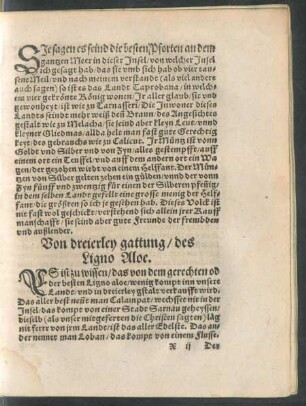 Sie sagen es seind die besten Pforten an dem
gantzen Meer in dieser Insel/ von welcher Insel
ich gesagt hab/ das sie vmb sich hab ob vier tau-
sent Meil/ vnd nach meinem verstand (als viel anders
auch sagen) so ist es das Landt Taprobana/ in welch-
em vier gekrönte König wonen. Ir aller glaub/ sie vnd
gewonheyt/ ist wie zu Tarnasseri/ Die Inwoner dieses
Landts seind mehr weiß denn Braun/ des Angesichts
gestalt wie zu Melacha/ sie seind aber kleyn Leut/ vnnd
kleyner Gliedmas/ allda helt man fast gute Gerechtig
keyt/ des gebrauchs wie zu Calicut. Ir Müntz ist vonn
Golde vnd Silber vnd von Zyn alles gestempfft/ auff
einem ort ein Teuffel/ vnd auff dem andern ort ein Wa
gen/ der gezohen wirdt von einem Helffant. Der Mün
tzen von Silber gelten zehen ein gülden/ vnnd der von
Zyn fünff vnnd zwentzig für einen der Silberen pfennig/
in dem selben Landt gefelle eine grosse menig der Helf-
fant/ die grösten so ich je gesehen hab. Dieses Volck ist
nit fast wol geschickt/ verstehend sich allein irer Kauff
manschafft/ sie seind aber gute Freunde der frembden
vnd außlender.
Von dreierley gattung/ des
Ligno Aloe.
ES ist zu wissen/ das von dem gerechten od
der besten Ligno aloe/ wenig kompt inn vnsere
Landt/ vnd in dreierley gstalt verkaufft wird/
Das aller best neñt man Calampat/ wechsset nit in der
Insel/ das kompt von einer Stadt Sarnau geheyssen/
dieselb (als vnser mitgeferten die Christen sagten) läg
nit ferr von jrem Landt/ ist das aller Edelste. Das an-
der nennet man Loban/ das kompt von einem Flusse.
R ij Des